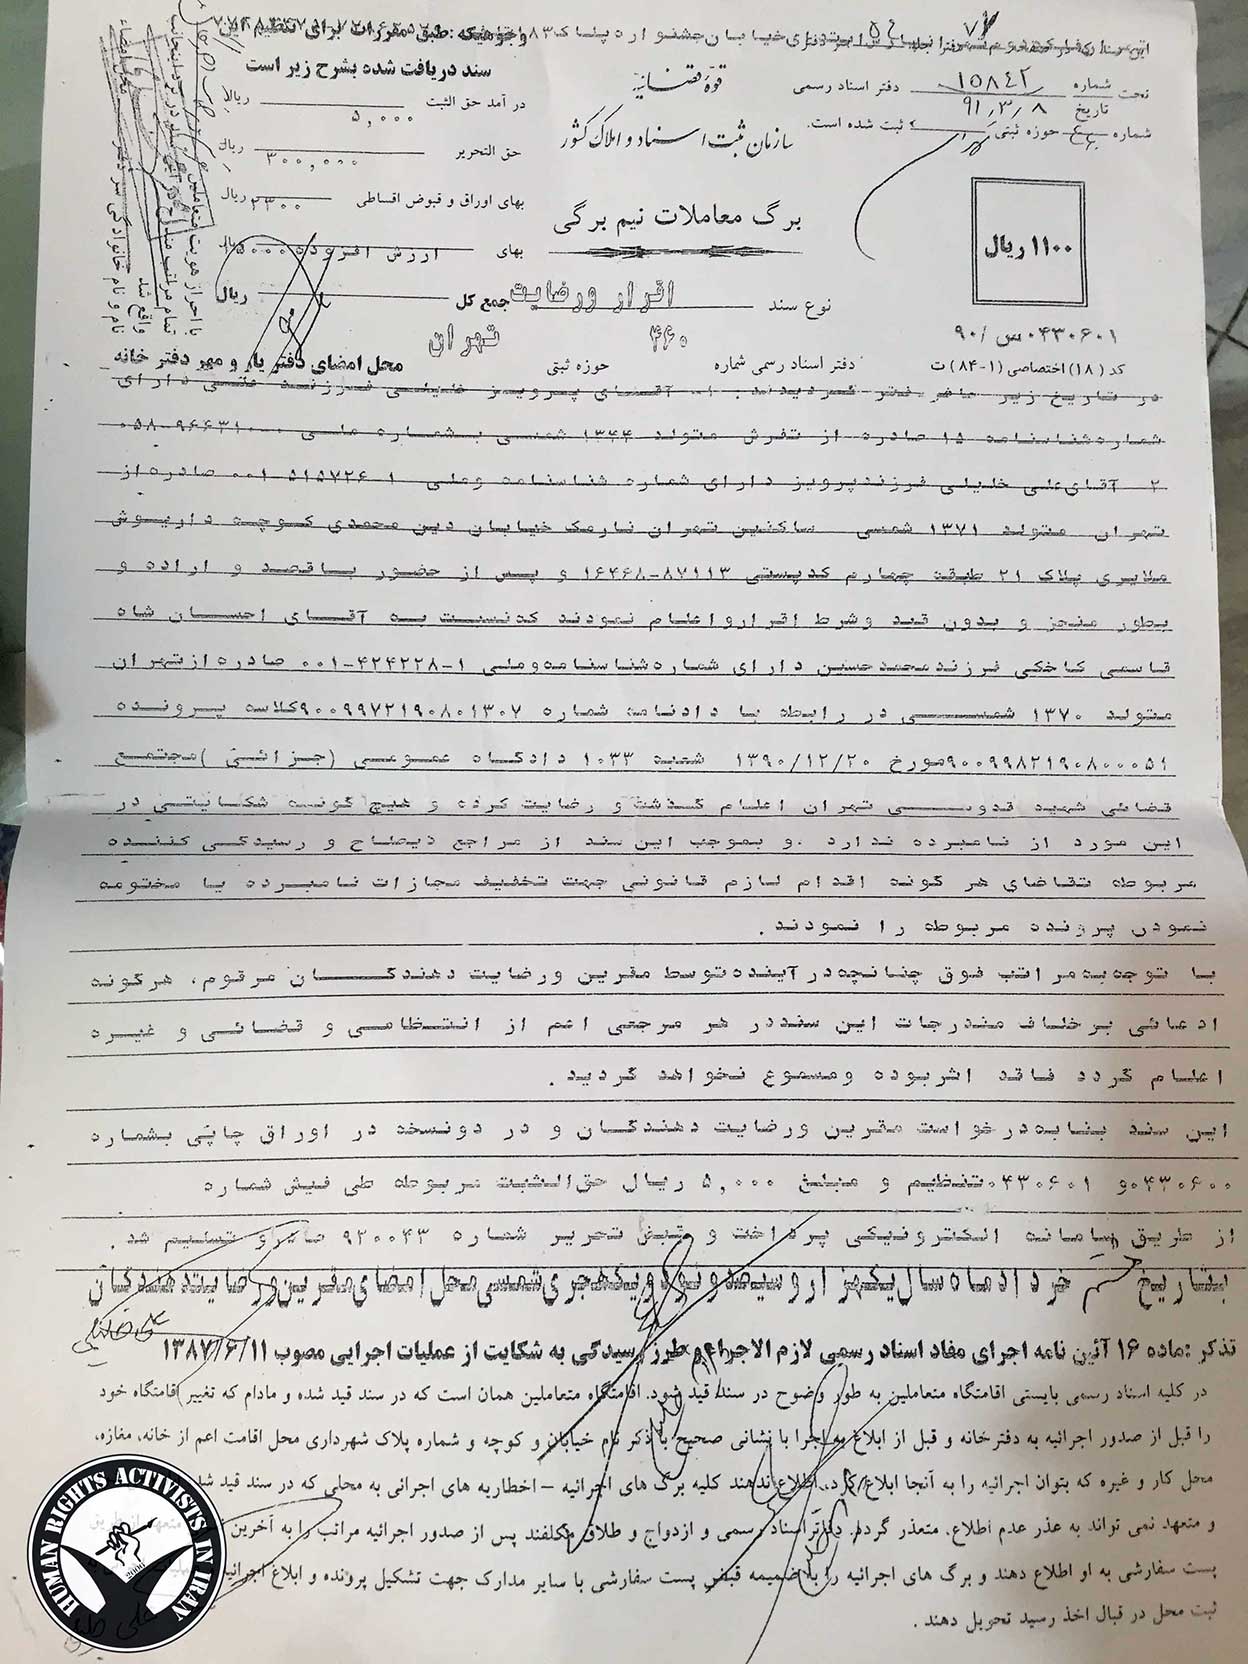 شماره ۱۵۸۴۲ دفتر اسناد رسمی
تاریخ ۹۱/۳/۸
حوزه ثبتی تهران ثبت شده است.
قوه قضائیه
سازمان ثبت اسناد و املاک کشور
برگ معاملات نیم برگی
۱۱۰۰ ریال
وجوهیکه طبق مقررات برای تنظیم این
سند دریافت شده بشرح زیر است
در آمد حق الثبت ۵,۰۰۰ ریال
حق التحریر ۳۰۰,۰۰۰ ریال
بهای اوراق و قبوض اقساطی ۲۳۰۰ ریال
بهای ارزش افزوده ۱۵۰۰۰ ریال
جمع کل ریال
نوع سند اقرار ورضایت
۰۴۳۰۶۰۱ س /۹۰
کد (۱۸) اختصاصی (۱-۸۴) ت
دفتر اسناد رسمی شماره ۴۶۰ حوزه ثبتی تهران
محل امضای دفتر یار و مهر دفتر خانه
در تاریخ زیر حاضر دفتر گردیدند: ۱- آقای پرویز خلیلی فرزند علی دارای
شماره شناسنامه ۱۵ صادره از تفرش متولد ۱۳۴۴ شمسی بشماره ملی
۲- آقای علی خلیلی فرزند پرویز دارای شماره شناسنامه وملی ۱-۵۱۵۷۲۶-۰۰۱ صادره از
تهران متولد ۱۳۷۱ شمسی ساکنین تهران نارمک خیابان دین محمدی کوچه داریوش
ملایری پلاک ۲۱ طبقه چهارم کدپستی ۸۷۱۱۳-۱۶۴۶۸ و پس از حضور باقصد و اراده و
بطور منجز و بدون قید وشرط اقرارو اعلام نمودند که نسبت به آقای احسان شاه
قاسمی کاخکی فرزند محمدحسین دارای شماره شناسنامه وملی ۱-۴۲۴۲۲۸-۰۰۱ صادره از تهران
متولد ۱۳۷۰ شمسی در رابطه با دادنامه شماره ۹۰۰۹۹۷۲۱۹۰۸۰۱۳۰۷ کلاسه پرونده
۹۰۰۹۹۸۲۱۹۰۸۰۰۰۵۱ مورخ ۱۳۹۰/۱۲/۲۰ شعبه ۱۰۳۳ دادگاه عمومی (جزائی) مجتمع
قضائی شهید قدوسی تهران اعلام گذشت و رضایت کرده و هیچ گونه شکایتی در
این مورد از نامبرده ندارد .و بموجب این سند از مراجع ذیصلاح و رسیدگی کننده
مربوطه تقاضای هر گونه اقدام لازم قانونی جهت تخفیف مجازات نامبرده یا مختومه
نمودن پرونده مربوطه را نمودند .
با توجه به مراتب فوق چنانچه در آینده توسط مقرین ورضایت دهندگان مرقوم، هرگونه
ادعائی برخلاف مندرجات این سند در هر مرجعی اعم از انتظامی و قضائی و غیره
اعلام گردد فاقد اثر بوده ومسموع نخواهد گردید .
این سند بنا به درخواست مقرین ورضایت دهندگان و در دونسخه در اوراق چاپی بشماره
۰۴۳۰۶۰۰ و ۰۴۳۰۶۰۱ تنظیم و مبلغ ۵,۰۰۰ ریال حق الثبت مربوطه طی فیش شماره
از طریق سامانه الکترونیکی پرداخت و قبض تحریر شماره ۹۲۰۰۴۳ صادر و تسلیم شد .
بتاریخ خرداد ماه سال یکهزار و سیصد و نود و یک هجری شمسی محل امضای مقرین و رضایت دهندگان
علی خلیلی
تذکر :ماده ۱۶ آئین نامه اجرای مفاد اسناد رسمی لازم الاجراء و طرز رسیدگی به شکایت از عملیات اجرایی مصوب ۱۳۸۷/۶/۱۱
در کلیه اسناد رسمی بایستی اقامتگاه متعاملین به طور وضوح در سند قید شود. اقامتگاه متعاملین همان است که در سند قید شده و مادام که تغییر اقامتگاه خود
را قبل از صدور اجرائیه به دفترخانه و قبل از ابلاغ به اجرا با نشانی صحیح با ذکر نام خیابان و کوچه و شماره پلاک شهرداری محل اقامت اعم از خانه، مغازه،
محل کار و غیره که بتوان اجرائیه را به آنجا ابلاغ کرد. اطلاع ندهند کلیه برگ های اجرائیه – اخطاریه های اجرائی به محلی که در سند قید شده
و متعهد نمی تواند به عذر عدم اطلاع، متعذر گردد. دفاتر اسناد رسمی و ازدواج و طلاق مکلفند پس از صدور اجرائیه مراتب را به آخرین متعهد از طریق
پست سفارشی به او اطلاع دهند و برگ های اجرائیه را به ضمیمه قبض پست سفارشی با سایر مدارک جهت تشکیل پرونده و ابلاغ اجرائیه
ثبت محل در قبال اخذ رسید تحویل دهند .
HUMAN RIGHTS ACTIVISTS IN IRAN
2006